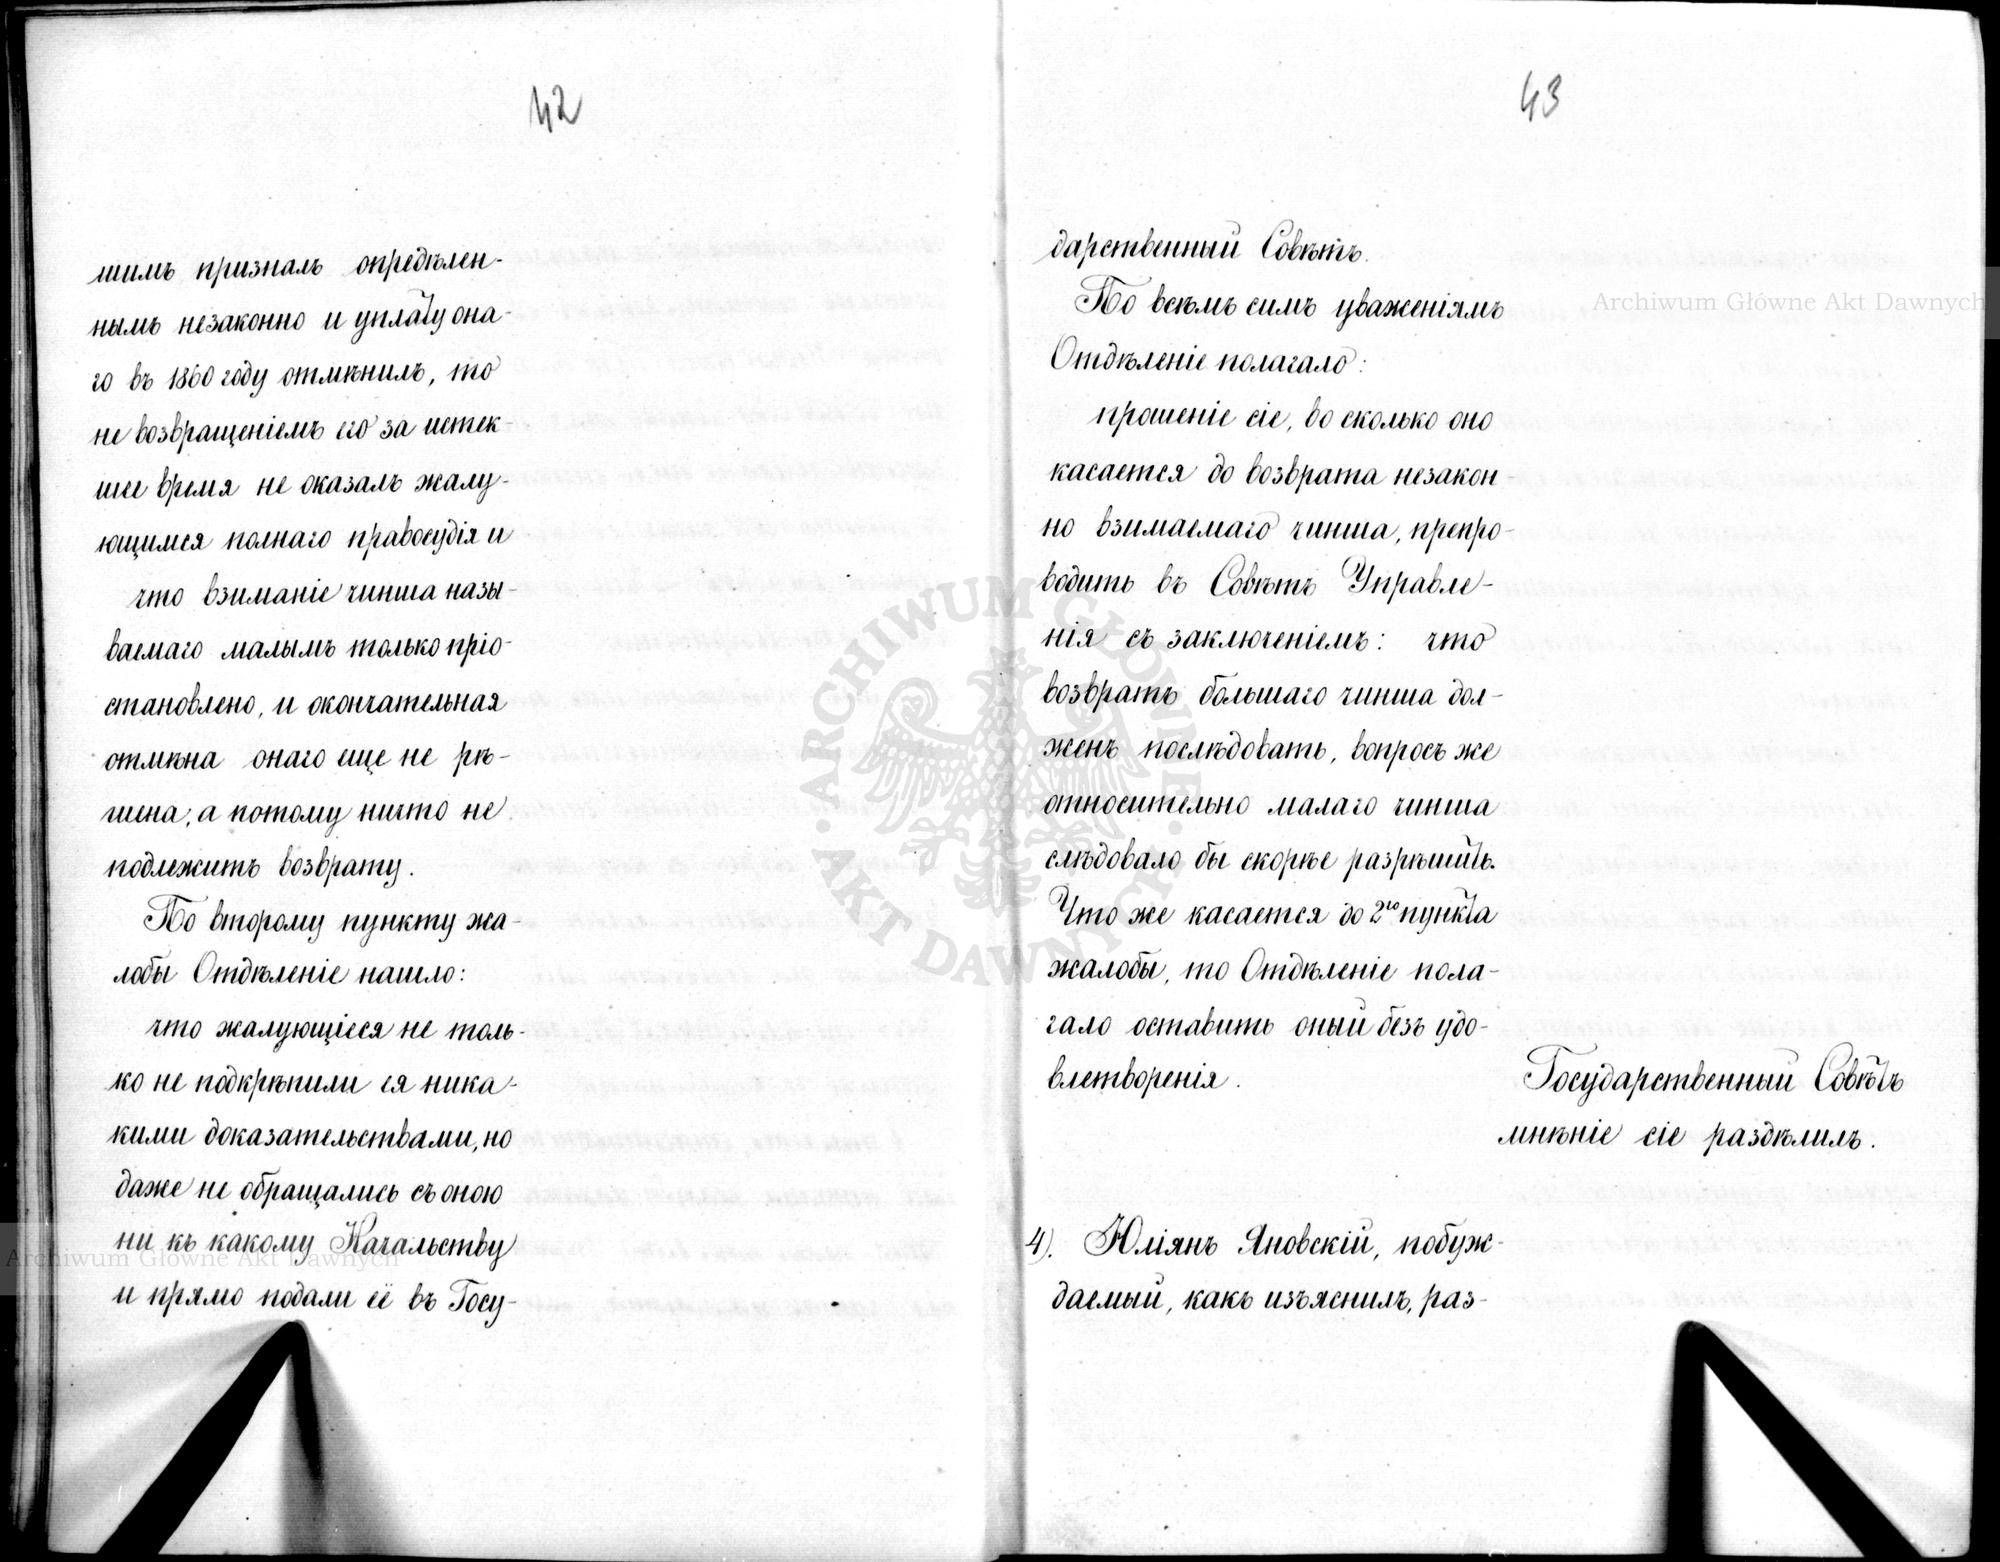 42
шимъ призналъ опредѣлен-
нымъ незаконно и уплату она-
го въ 1860 году отмѣнилъ, то
не возвращеніемъ его за истек-
шее время не оказалъ жалу-
ющимся полнаго правосудія и
что взиманіе чинша назы-
ваемаго малымъ только пріо-
становлено, и окончательная
отмѣна онаго еще не рѣ-
шена, а потому ничто не
подлежитъ возврату.
По второму пункту жа-
лобы Отдѣленіе нашло:
что жалующіеся не толь-
ко не подкрѣпили ея ника-
кими доказательствами, но
даже не обращались съ оною
ни къ какому Начальству
и прямо подали её въ Госу-
43
дарственный Совѣтъ.
По всѣмъ симъ уваженіямъ
Отдѣленіе полагало:
прошеніе сіе, во сколько оно
касается до возврата незакон-
но взимаемаго чинша, препро-
водить въ Совѣтъ Управле-
нія съ заключеніемъ: что
возвратъ большаго чинша дол-
женъ послѣдовать, вопросъ же
относительно малаго чинша
слѣдовало бы скорѣе разрѣшить.
Что же касается до 2го пункта
жалобы, то Отдѣленіе пола-
гало оставить оный безъ удо-
влетворенія.
Государственный Совѣтъ
мнѣніе сіе раздѣлилъ.
4). Юліянъ Яновскій, побуж-
даемый, какъ изъяснилъ, раз-
Archiwum Główne Akt Dawnych
Archiwum Główne Akt Dawnych
ARCHIWUM GŁÓWNE
AKT DAWNYCH